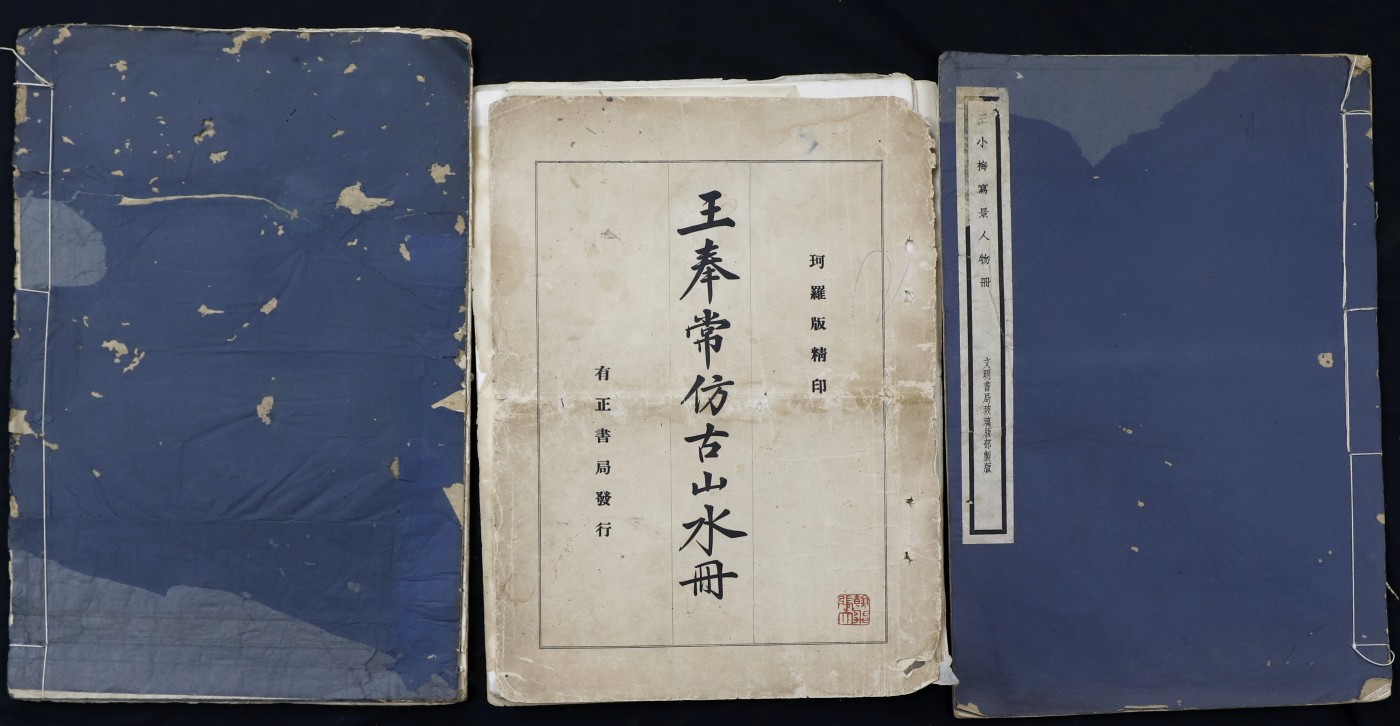 王小梅寫景人物冊
文明書局玻璃版部製版
珂羅版精印
王奉常仿古山水冊
有正書局發行